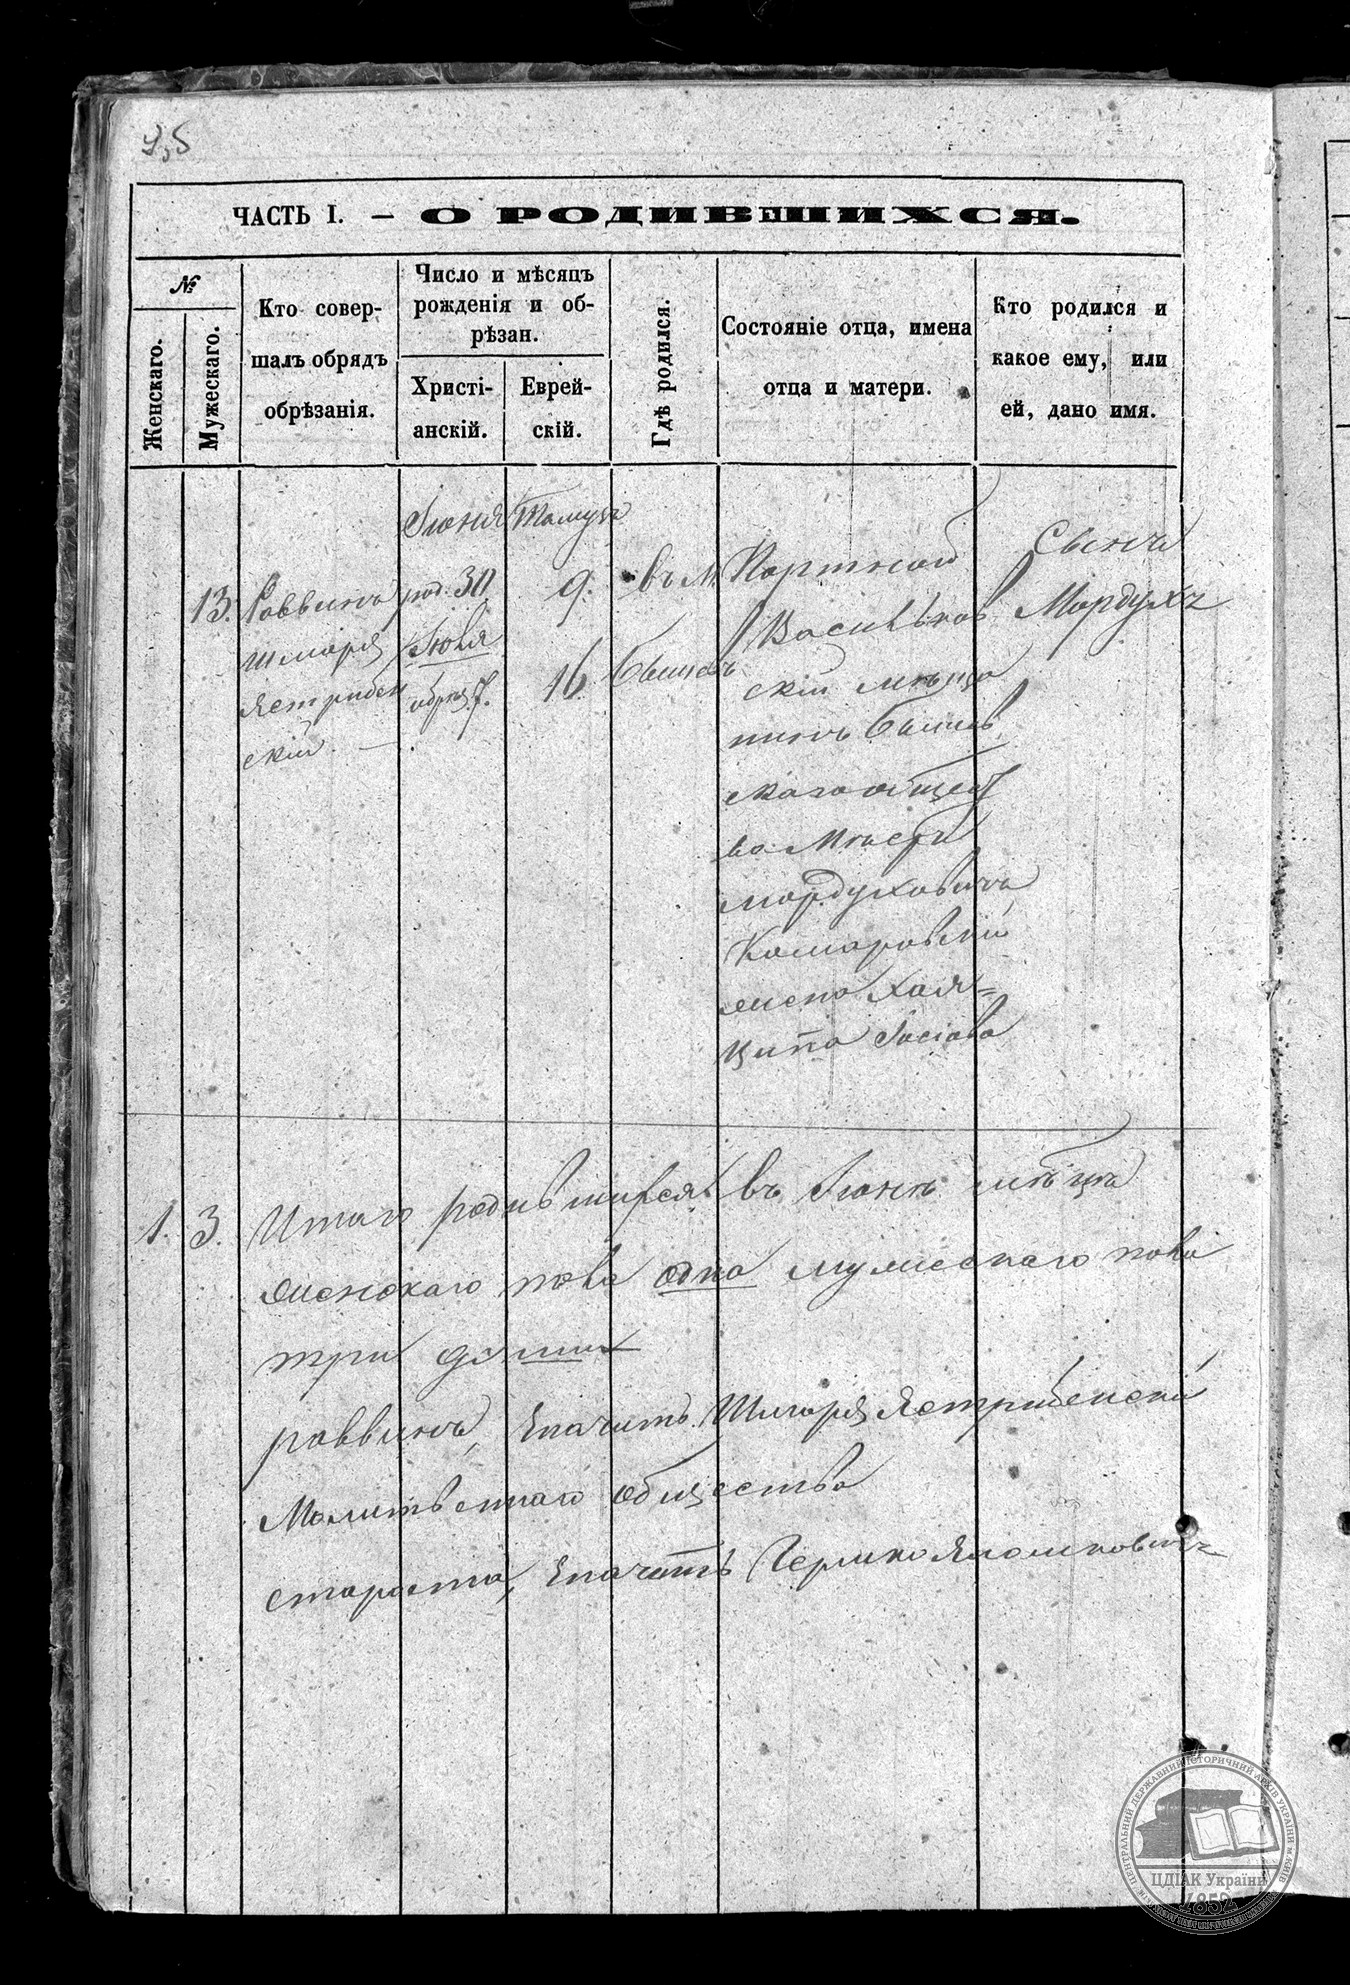 ЧАСТЬ I. — О РОДИВШИХСЯ.
№
Женскаго.
Мужескаго.
Кто совер-
шалъ обрядъ
обрѣзанія.
Число и мѣсяцъ
рожденія и об-
рѣзан.
Христі-
анскій.
Еврей-
скій.
Гдѣ родился.
Состояніе отца, имена
отца и матери.
Кто родился и
какое ему, или
ей, дано имя.
13.
Раввинъ
Шмаря
Ястрибен
скій
Іюня
род. 30
Іюля
обрѣз. 7.
Тамузъ
9.
16
въ м.
Бышевъ
Портной
Васильков
скій мѣща
нинъ Бышев
скаго общест
ва
Мордуховичъ
Комаровскій
жена Хая=
Ципа
Сынъ
Мордухъ
1. 3. Итого родившихся въ Іюнѣ мѣсцѣ
женскаго пола одна мужескаго пола
три души
раввинъ, Шмаря Ястрибенскій
Молитвеннаго общества
староста,
ЦЕНТРАЛЬНИЙ ДЕРЖАВНИЙ ІСТОРИЧНИЙ АРХІВ УКРАЇНИ м. КИЇВ
ЦДІАК України
1852